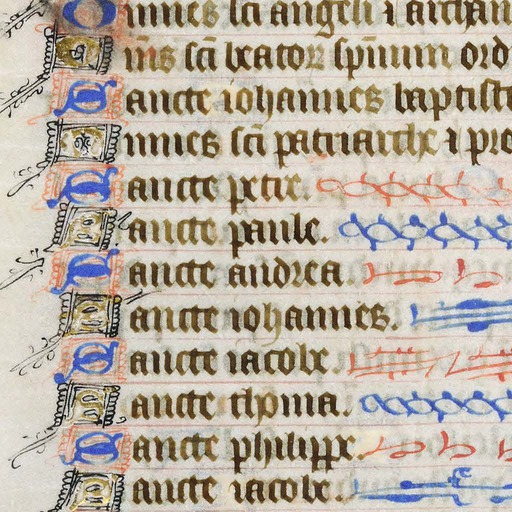 Omnes sci angeli ⁊ archan
Oms sci beatoꝝ spirituum ord
Sancte iohannes baptiste
Omnes sci patriarche ⁊ pro
Sancte petre.
Sancte paule.
Sancte andrea.
Sancte iohannes.
Sancte iacobe.
Sancte thoma.
Sancte philippe.
Sancte iacobe.